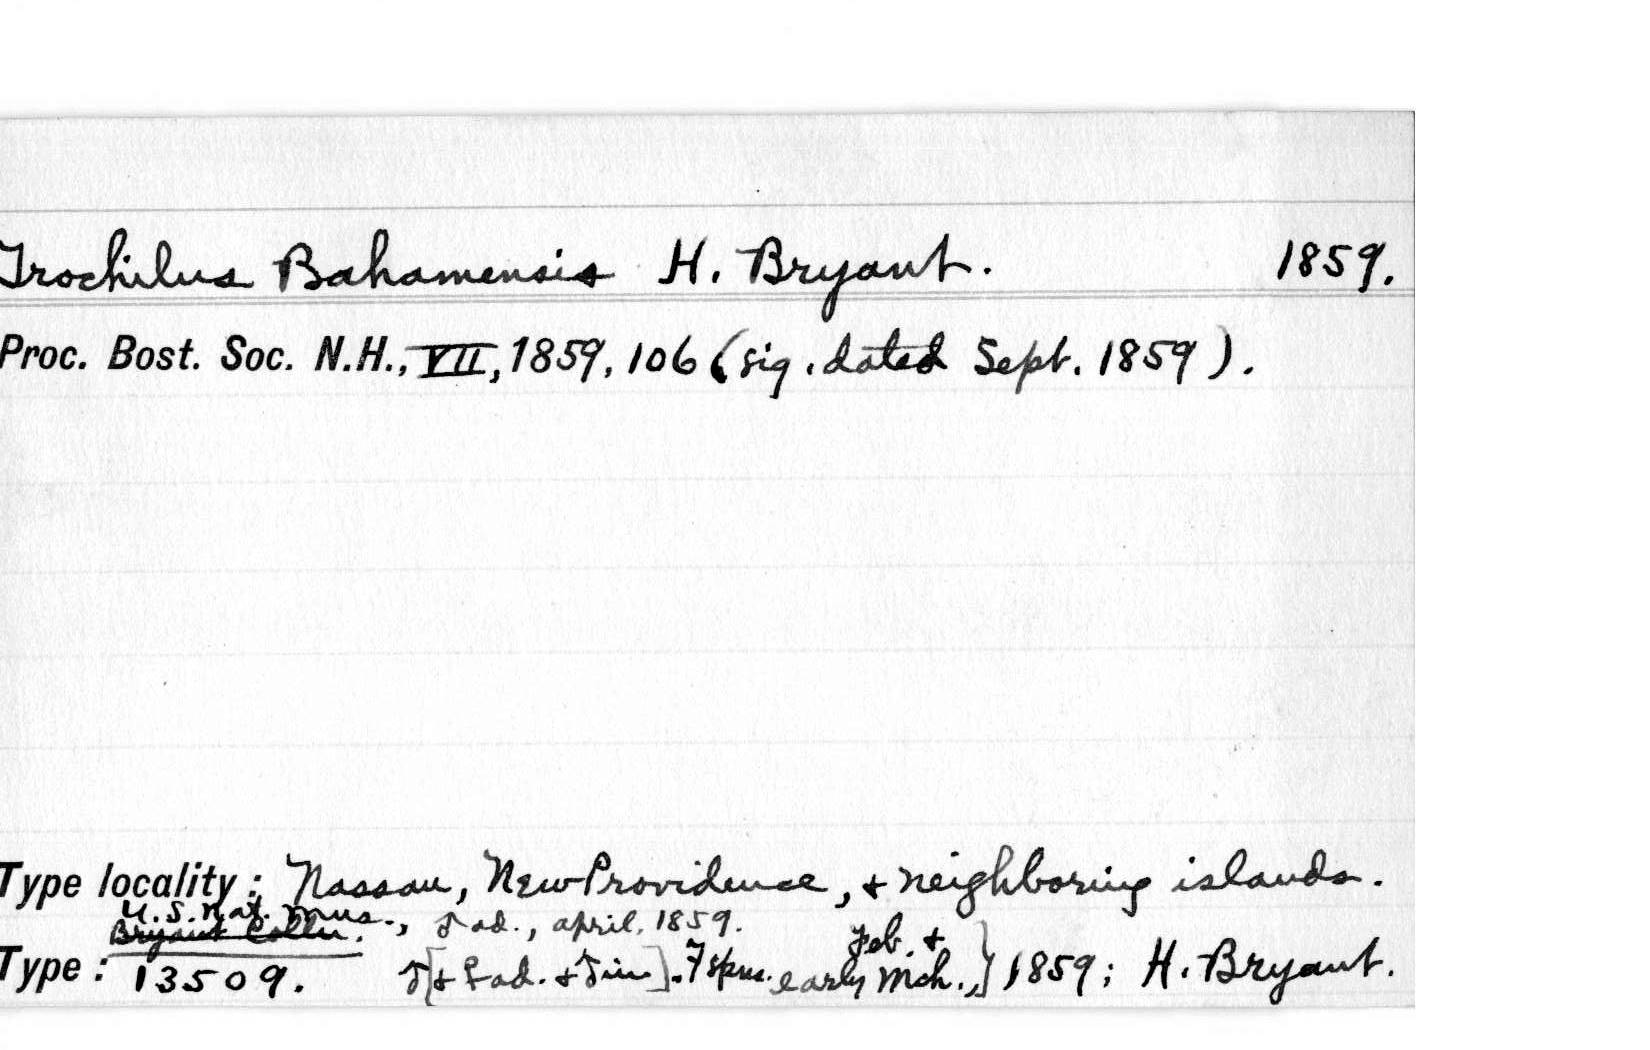 Trochilus Bahamensis H. Bryant. 1859.
Proc. Bost. Soc. N.H., VII, 1859, 106 (sig. dated Sept. 1859).
Type locality: Nassau, New Providence, & neighboring islands.
U.S. Nat. Mus., ♂ ad., April, 1859.
Bryant Colln.
Feb. &
Type: 13509. ♂[& ♀ ad. & ♂ im]. 7 spms. early Mch.,} 1859; H. Bryant.